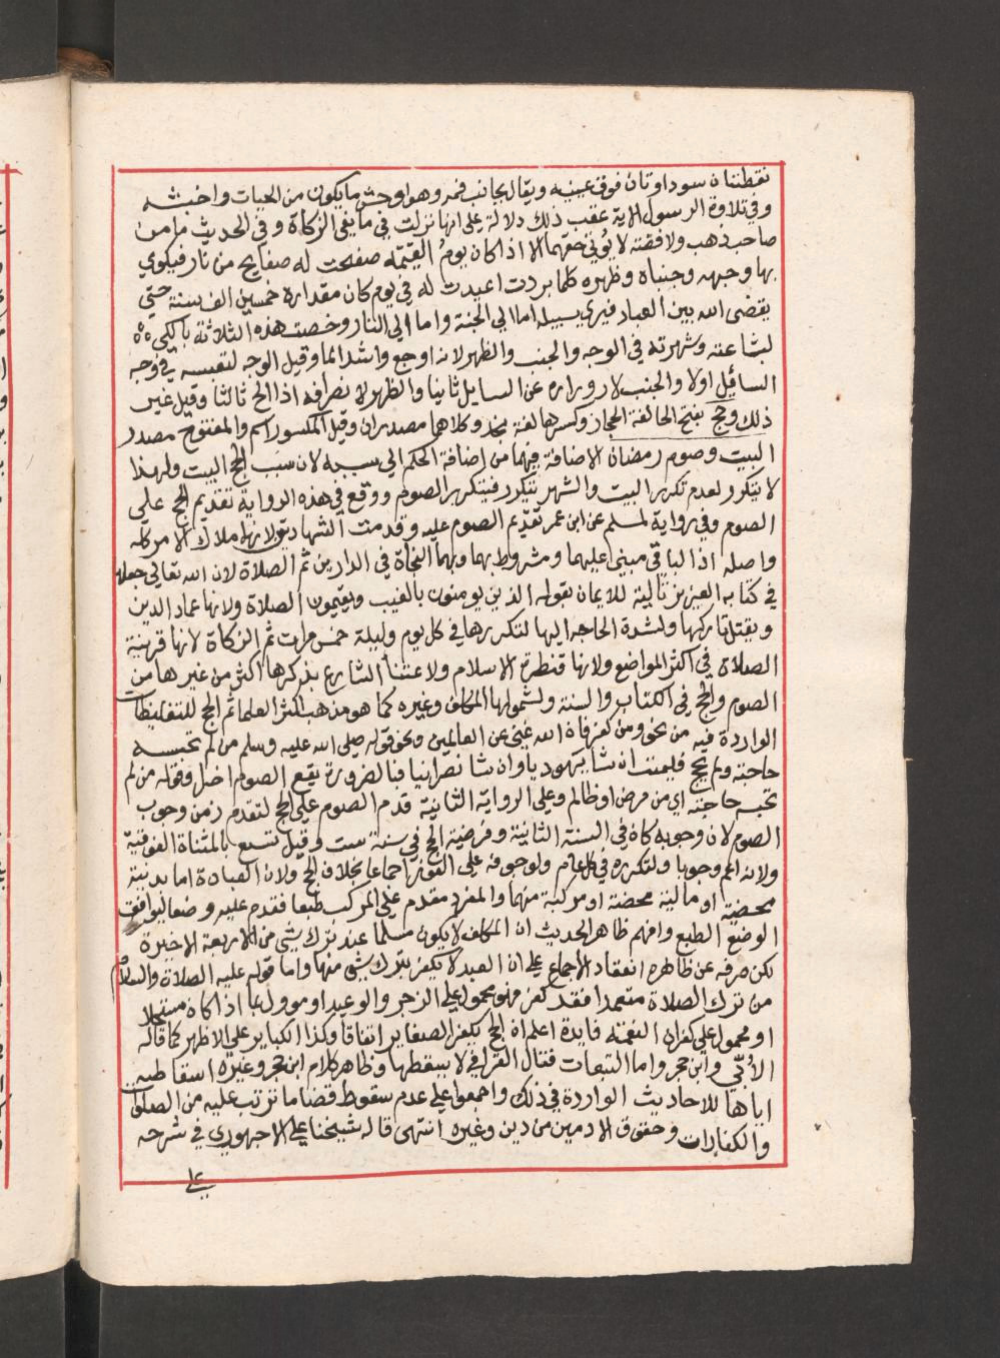 نقطتان سوداوتان فوق عينيه ويقال بجانب فمه وهو اوحش ما يكون من الحيات واخبثه
وفي تلاوة الرسول الاية عقب ذلك دلالة على انها نزلت في مانعي الزكاة وفي الحديث ما من
صاحب ذهب ولا فضة لا يؤتي حقهما الا اذا كان يوم القيمة صفحت له صفايح من نار فيكوي
بها وجبهه وجنباه وظهره كلما بردت اعيدت له في يوم كان مقداره خمسين الف سنة حتي
يقضى الله بين العباد فيري سبيله اما الي الجنة واما الي النار وخصت هذه الثلاثة بالكي
لبشاعته وشهرته في الوجه والجنب والظهر لانه اوجع واشد الما وقيل الوجه لتعبسه في وجه
السائل اولا والجنب لازوراره عن السايل ثانيا والظهر لانصرافه اذا الح ثالثا وقيل غير
ذلك وحج بفتح الحا لغة الحجاز وكسرها لغة نجد وكلاهما مصدران وقيل المكسور اسم والمفتوح مصدر
البيت وصوم رمضان الاضافة فيهما من اضافة الحكم الي سببه لان سبب الحج البيت ولهذا
لا يتكرر لعدم تكرر البيت والشهر يتكرر فيتكرر الصوم ووقع في هذه الرواية تقديم الحج علي
الصوم وفي رواية لمسلم عن ابن عمر تقديم الصوم عليه وقدمت الشهادتين لانهما ملاك الامر كله
واصله اذ الباقي مبني عليهما ومشروط بهما وبهما النجاة في الدارين ثم الصلاة لان الله تعالي جعلها
في كتابه العزيز تالية للايمان بقوله الذين يومنون بالغيب ويقيمون الصلاة ولانها عماد الدين
ويقتل تاركها ولشدة الحاجه اليها لتكررها في كل يوم وليلة خمس مرات ثم الزكاة لانها قرينة
الصلاة في اكثر المواضع ولانها قنطرة الاسلام ولاعتنا الشارع بذكرها اكثر من غيرها من
الصوم والحج في الكتاب والسنة ولشمولها المكلف وغيره كما هو مذهب اكثر العلما ثم الحج للتغليظات
الواردة فيه من نحو ومن كفر فان الله غني عن العالمين ونحو قوله صلى الله عليه وسلم من لم تحبسه
حاجته ولم يحج فليمت ان شا يهوديا وان شا نصرانيا فبالضرورة يقع الصوم اخرا وقوله من لم
تحبسه حاجته اي من مرض او ظالم وعلي الرواية الثانية قدم الصوم علي الحج لتقدم زمن وجوب
الصوم لان وجوبه كان في السنة الثانية وفرضية الحج في سنة ست وقيل تسع بالمثناة الفوقية
ولانه اعم وجوبا ولتكرره في كل عام ولوجوبه علي الفور اجماعا بخلاف الحج ولان العبادة اما بدنية
محضية او مالية محضة او مركبة منهما والمفرد مقدم علي المركب طبعا فقدم عليه وضعا ليوافق
الوضع الطبع وافهم ظاهر الحديث ان المكلف لا يكون مسلما عند ترك شي من الاربعة الاخيرة
لكن صرفه عن ظاهره انعقاد الاجماع علي ان العبد لا يكفر بترك شي منها واما قوله عليه الصلاة والسلام
من ترك الصلاة متعمدا فقد كفر فهو محمول علي الزجر والوعيد او موول بما اذا كان مستحلا
او محمول علي كفران النعمة فايدة اعلم ان الحج يكفر الصغاير اتفاقا وكذا الكباير علي الاظهر كما قاله
الأبي وابن حجر واما التبعات فقال القرافي لا يسقطها وظاهر كلام ابن حجر وغيره اسقاطه
اياها للاحاديث الواردة في ذلك واجمعوا علي عدم سقوط قضا ما ترتب عليه من الصلوات
والكفارات وحقوق الادمين من دين وغيره انتهى قاله شيخنا علي الاجهوري في شرحه
علي